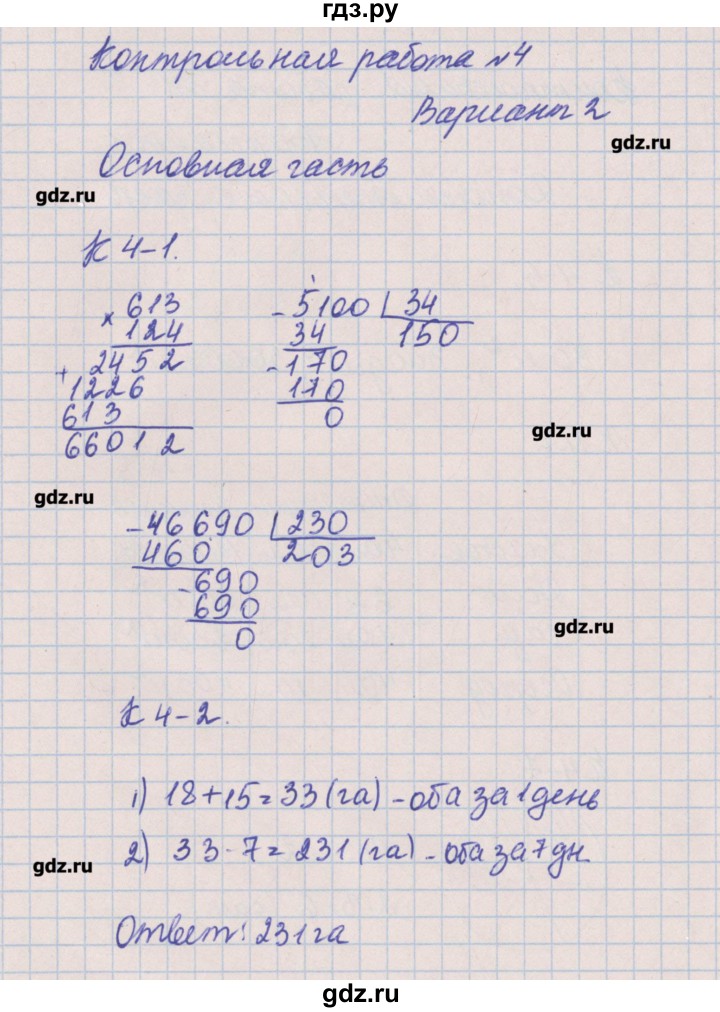 гдз.ру
Контрольная работа №4
Вариант 2
gdz.ru
Основная часть
gdz.ru
К 4-1.
× 613
124
+ 2452
1226
613
66012
- 5100 34
34 150
- 170
170
0
gdz.ru
gdz.ru
- 46690 230
460 203
- 690
690
0
gdz.ru
К 4-2.
1) 18+15=33 (га) - оба за 1 день
2) 33·7=231 (га) - оба за 7 дн.
gdz.ru
Ответ: 231 га
gdz.ru